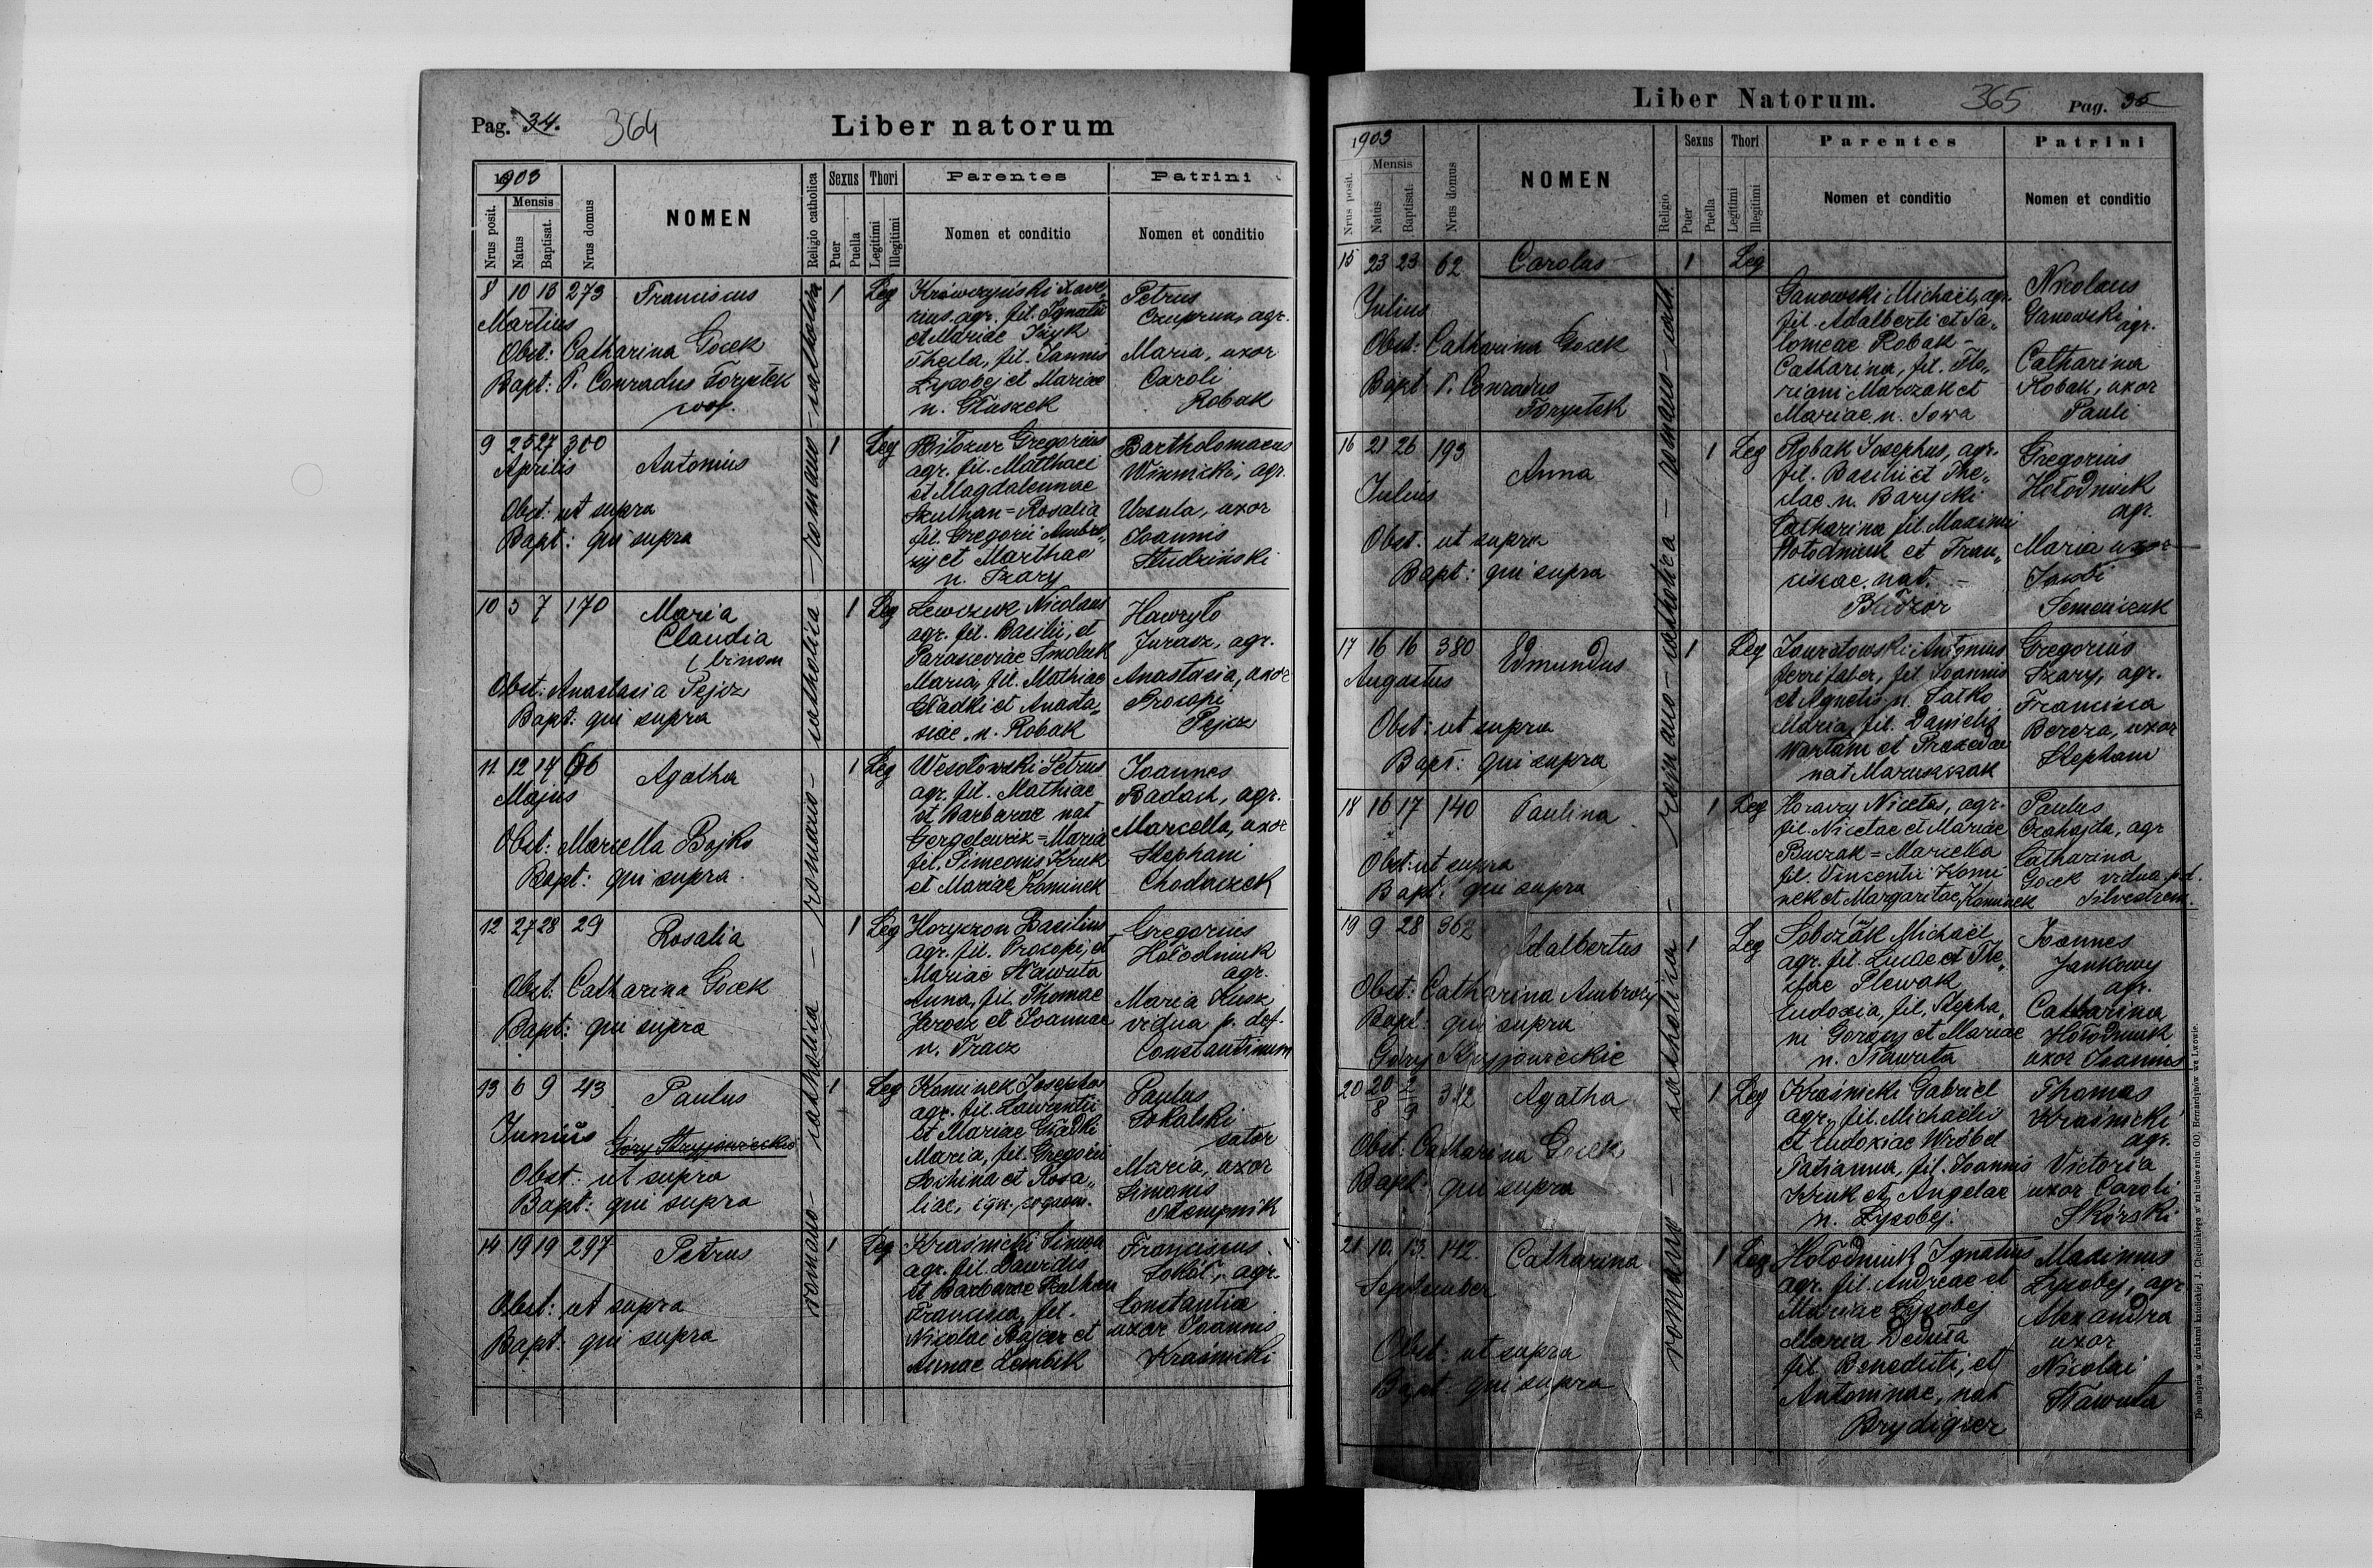 Pag. 34. 364 Liber natorum
1903
Nrus posit.
Mensis
Natus
Baptisat.
Nrus domus
NOMEN
Religio catholica
Sexus
Puer
Puella
Thori
Legitimi
Illegitimi
Parentes
Nomen et conditio
Patrini
Nomen et conditio
romano - catholica - romano - catholica - romano - catholica
8 10 13 273 Franciscus 1 Leg
Martius
Obst: Catharina Gocek
Bapt: P. Conradus Forystek
Krówczyński Xave„
rius agr. fil. Ignatii
et Mariae
Thecla, fil. Joannis
Łysobej et Mariae
n. Głuszek
Petrus
Czuprun, agr.
Maria, uxor
Caroli
Robak
9 25 27 300 Antonius 1 Leg
Aprilis
Obst: ut supra
Bapt: qui supra
Biłozur Gregorius
agr. fil. Matthaei
et Magdalennae
Szulhan = Rosalia
fil. Gregorii Ambro„
zij et Marthae
n. Szary
Bartholomaeus
Winnicki, agr.
Ursula, uxor
Joannis
Studziński
10 5 7 170 Maria 1 Leg
Claudia
(binom
Obst: Anastasia Pejcz
Bapt: qui supra
Lewczuk Nicolaus
agr. fil. Basilii, et
Parasceviae Smoluk
Maria, fil. Mathiae
Gładki et Anasta„
siae. n. Robak
Hawryło
Jurasz, agr.
Anastasia, uxor
Procopi
Pejcz
11 12 14 66 Agatha 1 Leg
Majus
Obst: Marcella Bojko
Bapt: qui supra.
Wesołowski Petrus
agr. fil. Mathiae
et Barbarae nat
= Maria
fil. Simeonis Kruk
et Mariae Kominek
Joannes
Badach, agr.
Marcella, uxor
Stephani
Chodaczek
12 27 28 29 Rosalia 1 Leg
Obst: Catharina Gocek
Bapt: qui supra
Horyczon Basilius
agr. fil. Procopi, et
Mariae Sławuta
Anna, fil. Thomae
Jarosz et Joannae
n. Tracz
Gregorius
Hołodniuk
agr.
Maria Kusz
vidua p. def.
Constantinum
13 6 9 43 Paulus 1 Leg
Junius Góry Stryjowieckie
Obst: ut supra
Bapt: qui supra
Kominek Josephus
agr. fil. Laurentii
et Mariae Gładki
Maria, fil. Gregorii
Sochina et Rosa„
liae, ign. cognom.
Paulus
Sokalski
sator
Maria, uxor
Simonis
Stempnik
14 19 19 297 Petrus 1 Leg
Obst: ut supra
Bapt: qui supra
Kraśnicki Simon
agr. fil. Davidis
et Barbarae
Francisca, fil.
Nicolai Bajcer et
Annae Zembik
Franciscus
Sokół, agr.
Constantia
uxor Joannis
Kraśnicki
Liber Natorum. 365 Pag. 35
1903
Nrus posit.
Mensis
Natus
Baptisat.
Nrus domus
NOMEN
Religio
Sexus
Puer
Puella
Thori
Legitimi
Illegitimi
Parentes
Nomen et conditio
Patrini
Nomen et conditio
romano - catholica - romano - catholica - romano - cath.
15 23 23 62 Carolus 1 Leg
Julius
Obst: Catharina Gocek
Bapt P. Conradus
Forystek
Ganowski Michael, agr.
fil. Adalberti et Sa„
lomeae Robak -
Catharina, fil. Flo„
riani Marczak et
Mariae n. Sowa
Nicolaus
Ganowski
agr.
Catharina
Robak, uxor
Pauli
16 21 26 193 Anna 1 Leg
Julius
Obst: ut supra
Bapt: qui supra
Robak Josephus, agr.
fil. Basilii et The„
clae n. Barycki
Catharina fil. Maximi
Hołodniuk et Fran„
ciscae nat. -
Gregorius
Hołodniuk
agr.
Maria uxor
Jacobi
Semeniczuk
17 16 16 380 Edmundus 1 Leg
Augustus
Obst: ut supra
Bapt: qui supra
Antonius
ferri faber, fil Joannis
et Agnetis n. Satko
Maria, fil. Danielis
Wartani et Praxedae
nat Maruszczak
Gregorius
Szary, agr.
Francisca
Bereza, uxor
Stephani
18 16 17 140 Paulina 1 Leg
Obst: ut supra
Bapt: qui supra
Horaczy Nicetas, agr.
fil. Nicetae et Mariae
Buczak = Maricella
fil. Vincentii Komi
nek et Margaritae Kominek
Paulus
Czahajda, agr
Catharina
Gocek vidua p.d.
Silvestrem.
19 9 28 362 Adalbertus 1 Leg
Obst: Catharina Ambrozij
Bapt: qui supra
Góry Stryjowieckie
Sobczak Michael
agr. fil. Lucae et The„
clae Plewak
Eudoxia, fil. Stepha„
ni Gorący et Mariae
n. Sławuta
Joannes
Jankowy
agr.
Catharina
Hołodniuk
uxor Joannis
20 20/8 2/9 312 Agatha 1 Leg
Obst: Catharina Gocek
Bapt: qui supra
Kraśnicki Gabriel
agr., fil. Michaelis
et Eudoxiae Wróbel
Tatianna, fil. Joannis
Kruk et Angelae
n. Łysobej.
Thomas
Kraśnicki
agr.
Victoria
uxor Caroli
Skórski
21 10. 13. 142. Catharina 1 Leg
September
Obst: ut supra
Bapt: qui supra
Hołodniuk Ignatius
agr. fil. Andreae et
Mariae Łysobej
Maria Deduła
fil. Benedicti, et
Antoninae, nat
Brydigier
Maximus
Łysobej, agr
Alexandra
uxor
Nicolai
Sławuta
Do nabycia w drukarni katolickiej J. Chęcińskiego w zabudowaniu OO. Bernardynów we Lwowie.